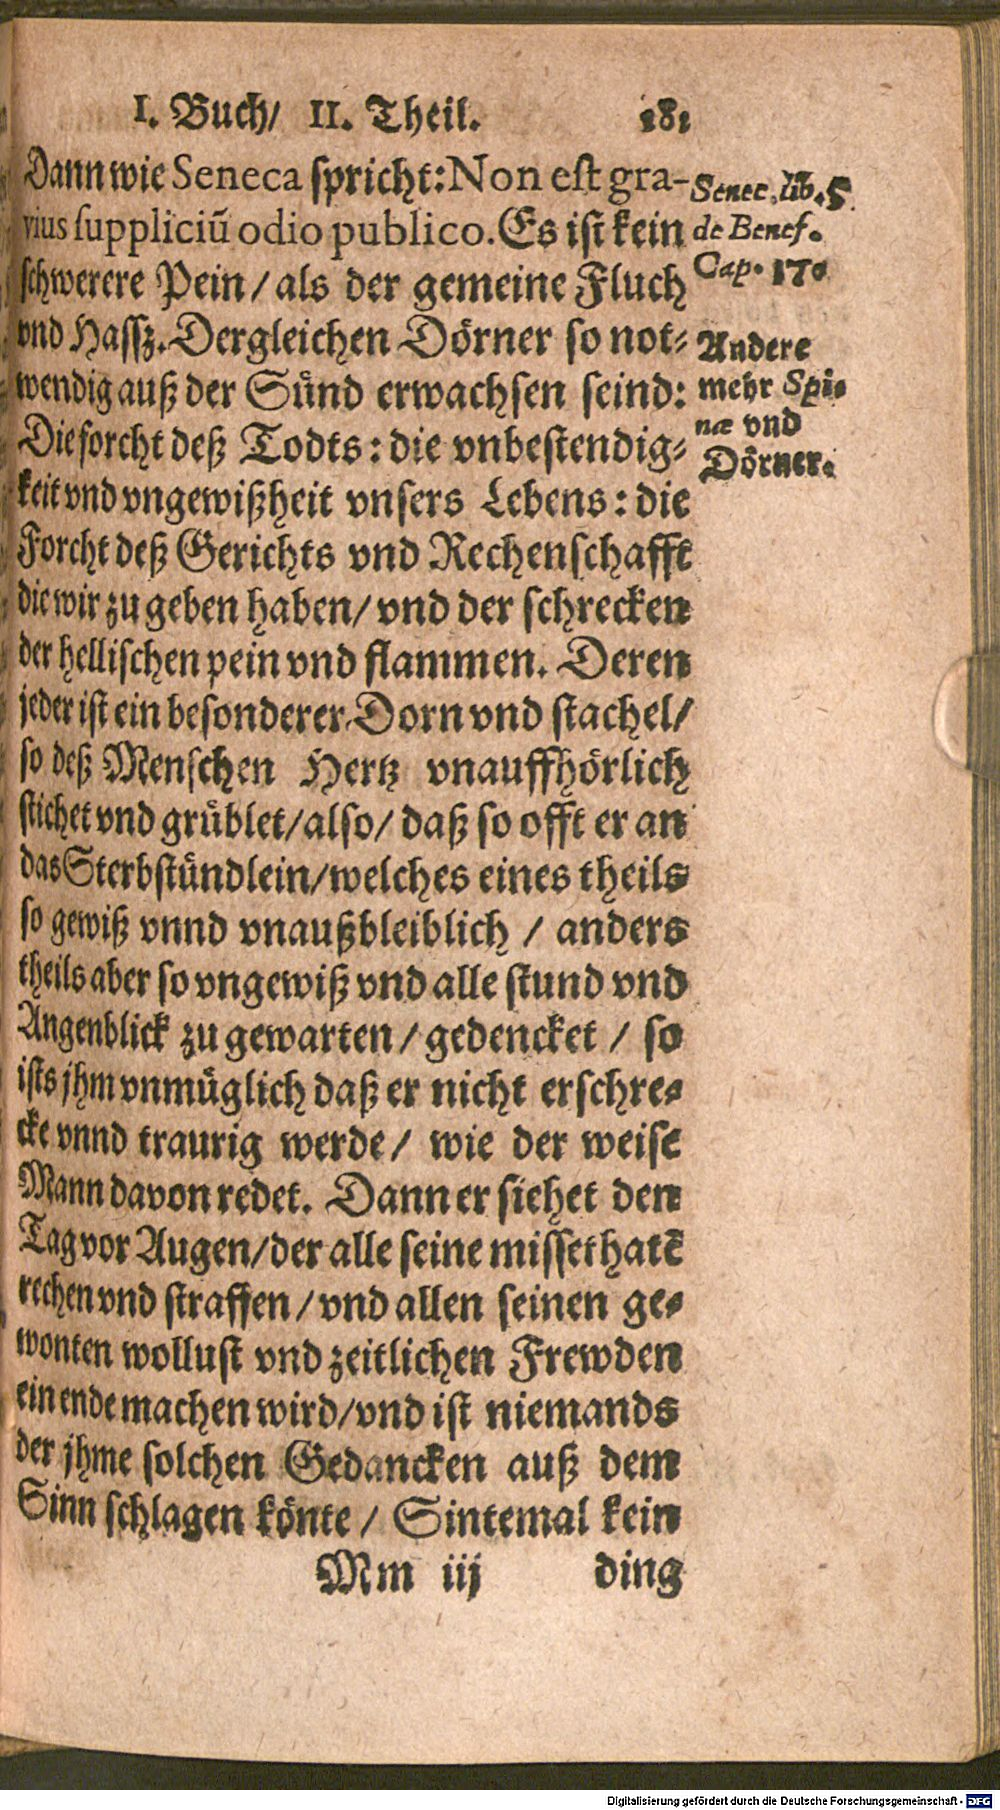 I. Buch/ II. Theil. 181
Dann wie Seneca spricht: Non est gra-
vius suppliciū odio publico. Es ist kein
schwerere Pein / als der gemeine Fluch
vnd Hassz. Dergleichen Dörner so not-
wendig auß der Sünd erwachsen seind:
Die forcht deß Todts: die vnbestendig-
keit vnd vngewißheit vnsers Lebens: die
Forcht deß Gerichts vnd Rechenschafft
die wir zu geben haben/ vnd der schrecken
der hellischen pein vnd flammen. Deren
jeder ist ein besonderer Dorn vnd stachel/
so deß Menschen Hertz vnauffhörlich
stichet vnd grüblet/also/ daß so offt er an
das Sterbstündlein/welches eines theils
so gewiß vnnd vnaußbleiblich / anders
theils aber so vngewiß vnd alle stund vnd
Angenblick zu gewarten / gedencket / so
ists jhm vnmüglich daß er nicht erschre-
cke vnnd traurig werde/ wie der weise
Mann davon redet. Dann er siehet den
Tag vor Augen/der alle seine missethatē
rechen vnd straffen / vnd allen seinen ge-
wonten wollust vnd zeitlichen Frewden
ein ende machen wird/vnd ist niemands
der jhme solchen Gedancken auß dem
Sinn schlagen könte / Sintemal kein
Mm iij ding
Senec. lib. 5
de Benef.
Cap. 17.
Andere
mehr Spi-
næ vnd
Dörner.
Digitalisierung gefördert durch die Deutsche Forschungsgemeinschaft - DFG